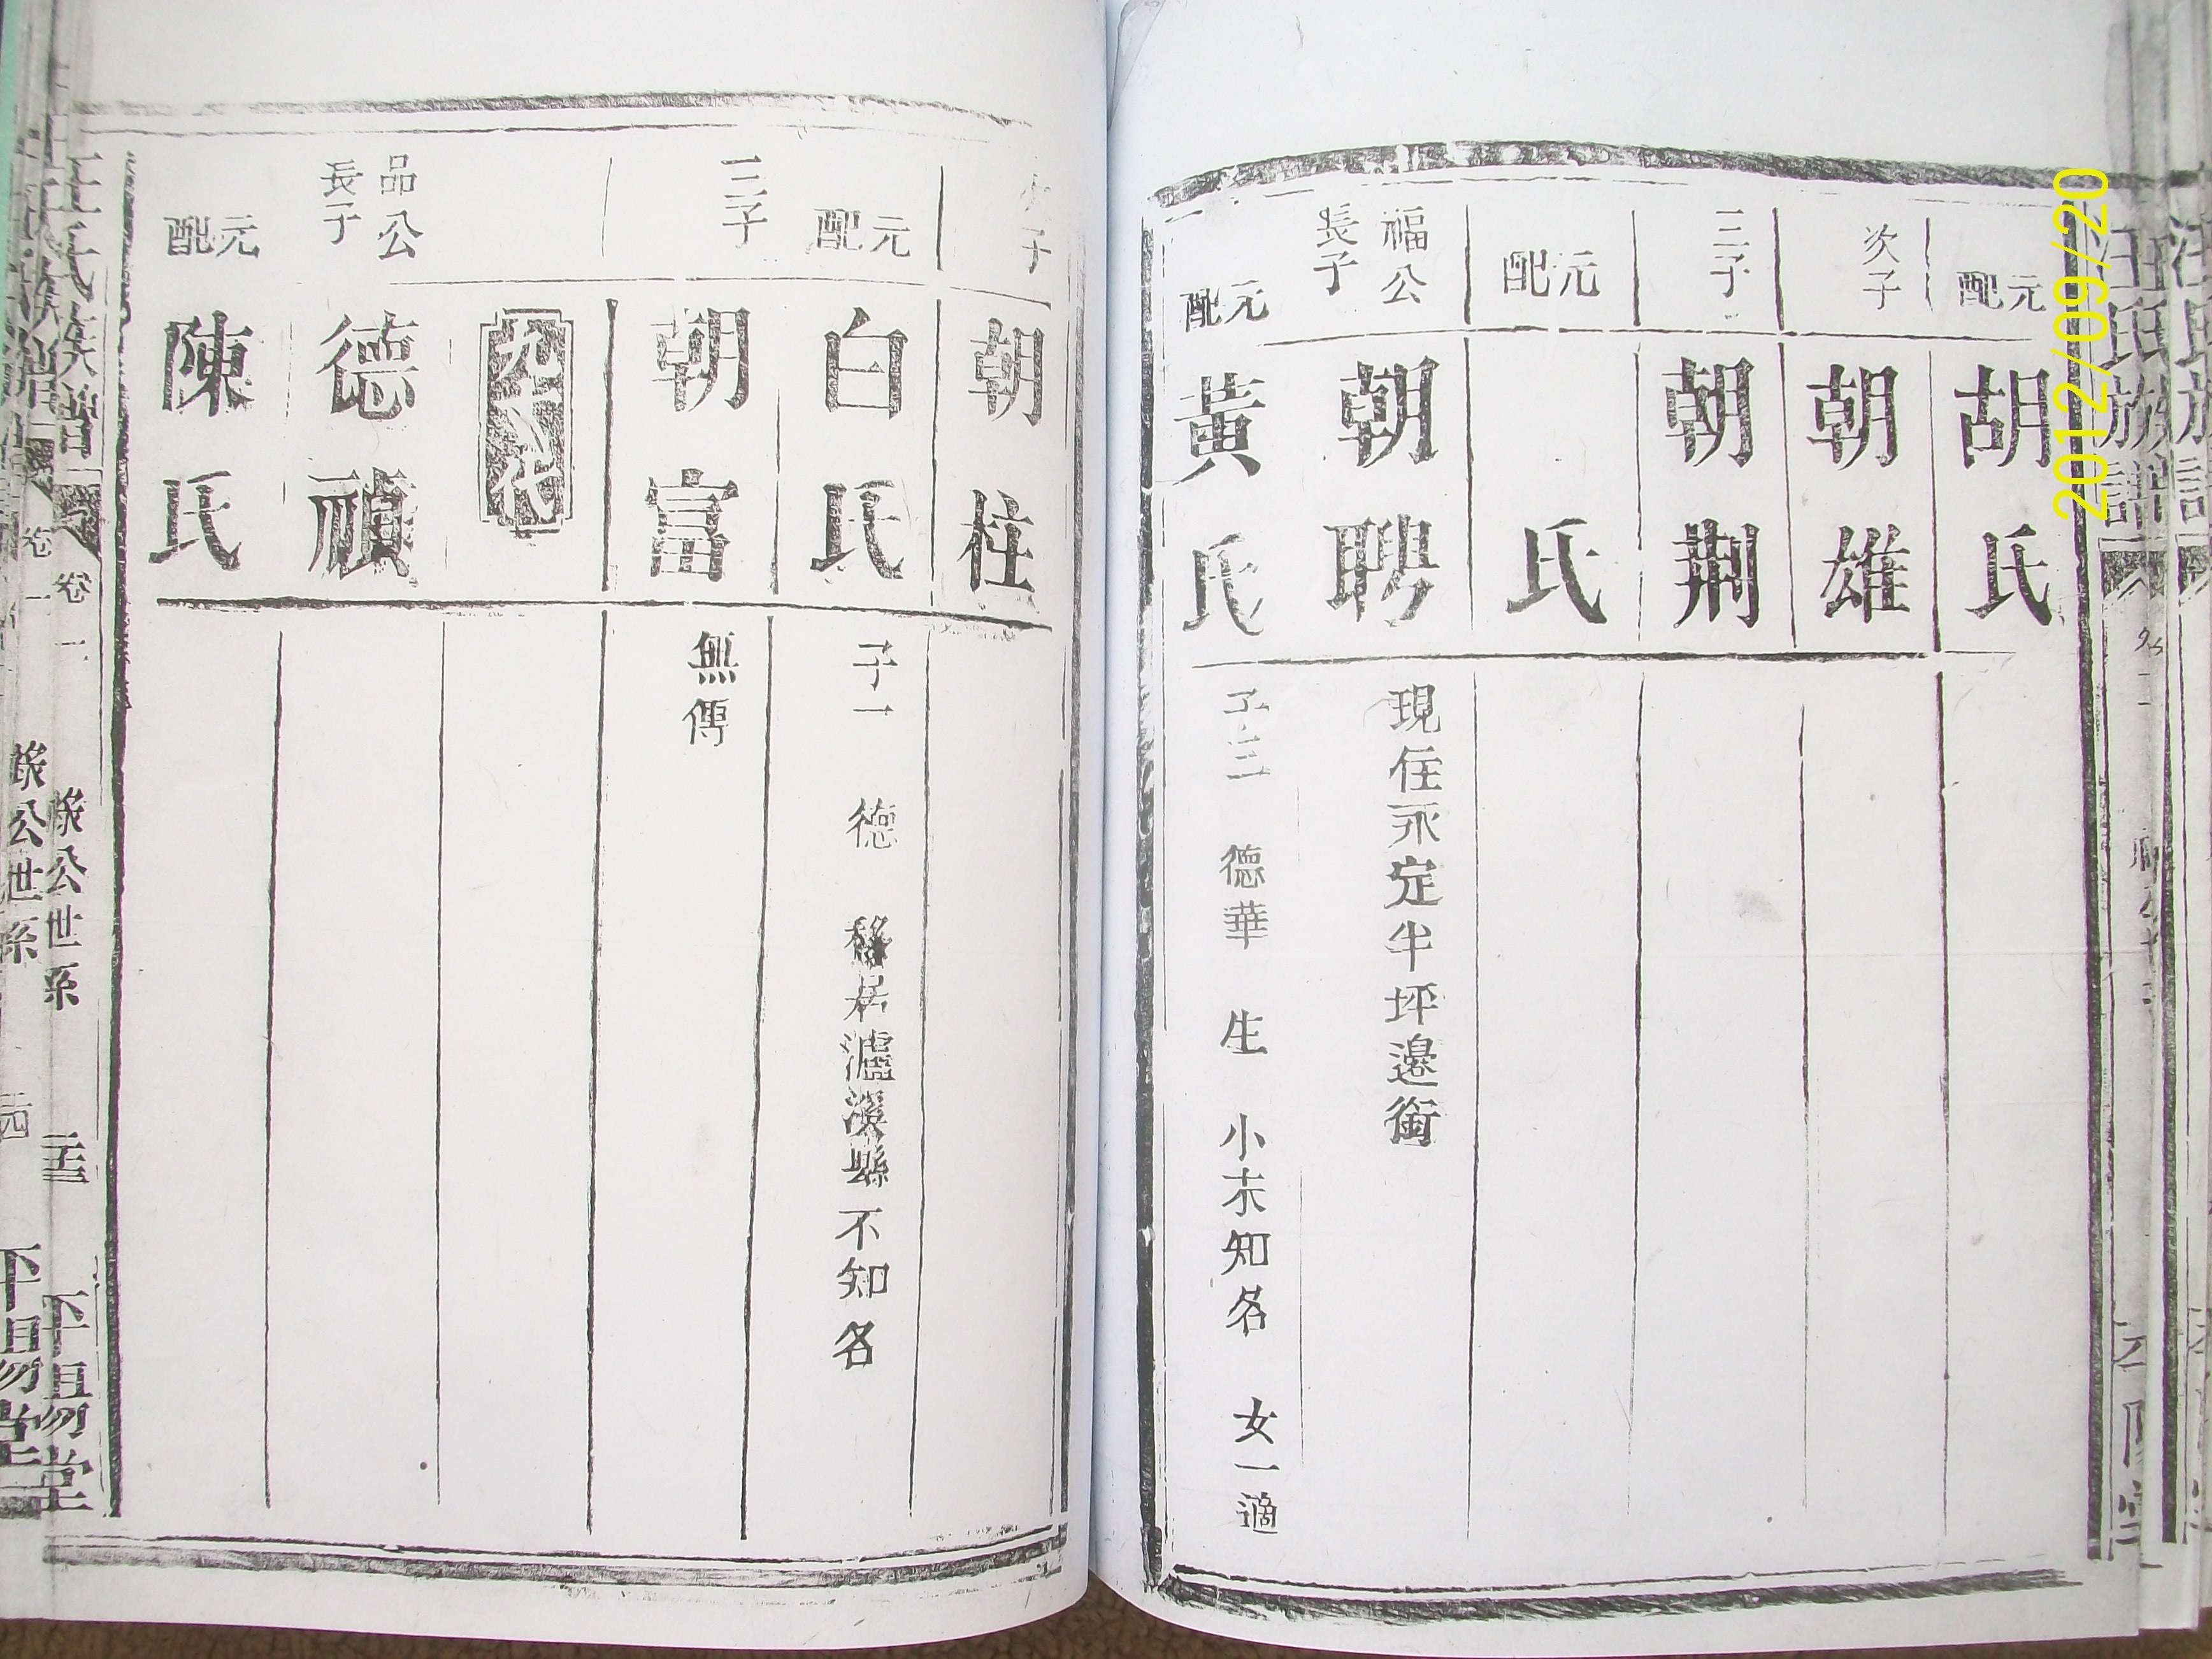 元配
胡氏
次子
朝雄
三子
朝荆
元配
氏
福公
長子
朝聘
現住永定半坪邉衕
元配
黄氏
子三 德華 生 小未知名 女一適
子
朝柱
元配
白氏
子一 德 移居瀘溪縣不知名
三子
朝富
無傳
九代
品公
長子
德禎
元配
陳氏
汪氏族譜
卷一
公世系
平昜堂
2012/09/20